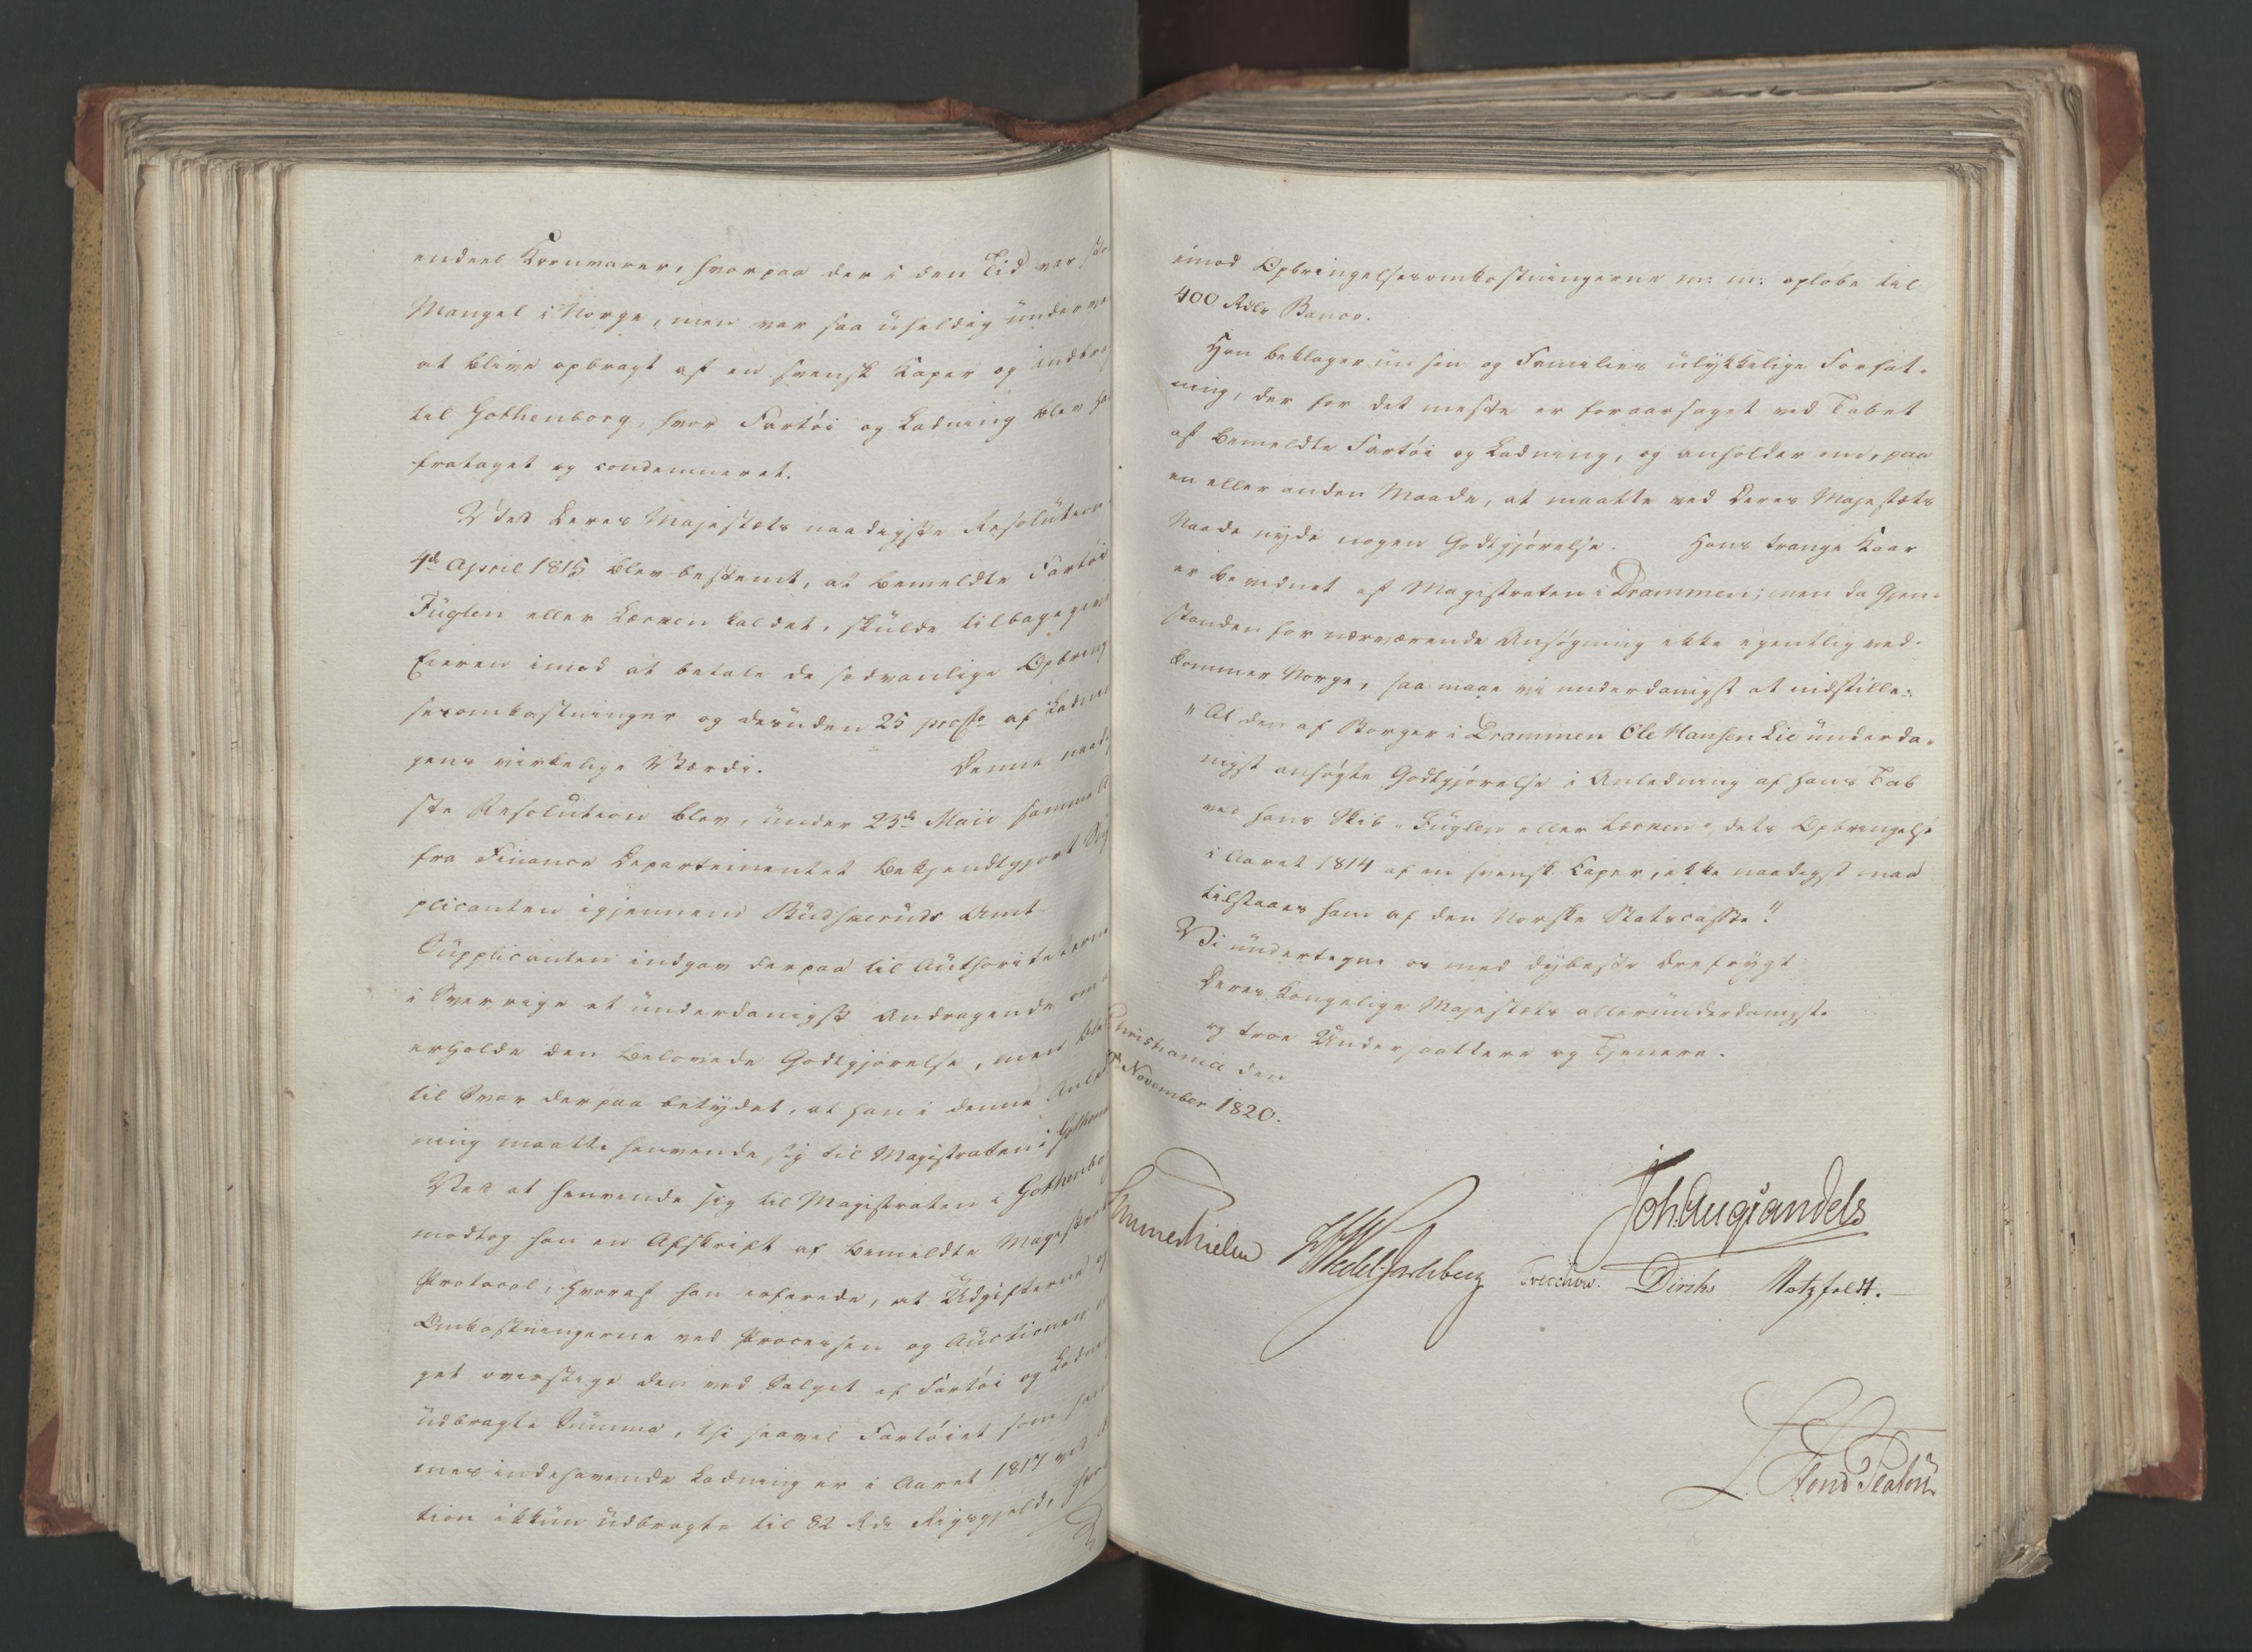 endeel Kornvarer, hvorpaa der i den Tid var
Mangel i Norge, men var saa uheldig underve
at blive opbragt af en svensk Kaper og indbra
til Gothenborg, hvor Fartöi og Ladning blev ha
frataget og condemneret.
Ved Deres Majestets naadigste Resolution
4de April 1815 blev bestemt, at bemeldte Fartöi
Fuglen eller Lærken kaldet, skulde tilbagegive
Eieren imod at betale de sedvanlige Opbring
sesomkostninger og desuden 25 procto af Ladni
gens virkelige Værdi. Denne naadig
ste Resolution blev, under 23de Maii samme A
fra Finance Departementet bekjendtgjort Sup
plicanten igjennem Budskeruds Amt
Supplicanten indgav derpaa til Authoriteterne
i Sverrige et underdanigst Andragende om a
erholde den belovede Godtgjörelse, men blev
til Svar derpaa betydet, at han i denne Anled
ning maatte henvende sig til Magistraten i Gothenb
Ved at henvende sig til Magistraten i Gothenbo
modtog han en Afskrift af bemeldte Magistrat
Protocol, hvoraf han erfarede, at Udgifterne og
Omkostningerne ved Processen og Auctionen
get overstige den ved Salget af Fartöi og Ladni
udbragte Summa, thi saavel Fartöiet som sam
mes indehavende Ladning er i Aaret 1817 ved A
tion ikkun udbragte til 82 Rdr Rigsgjeld, hvor
imod Opbringelsesomkostningerne m: m: oplöbe til
400 Rdlr Banco.
Han beklager nu sin og Families ulykkelige Forfat-
ning, der for det meste er foraarsaget ved Tabet
af bemeldte Fartöi og Ladning, og anholder om, paa
en eller anden Maade, at maatte ved Deres Majestæts
Naade nyde nogen Godtgjörelse. Hans trange Kaar
er bevidnet af Magistraten i Drammen; men da Gjen-
standen for nærværende Ansögning ikke egentlig ved-
kommer Norge, saa maae vi underdanigst at indstille:
"At den af Borger i Drammen Ole Hansen Lie underda-
nigst ansögte Godtgjörelse i Anledning af hans Tab
ved hans Skib "Fuglen eller Lærken", dets Opbringelse
i Aaret 1814 af en svensk Kaper, ikke naadigst maa
tilstaaes ham af den Norske Statscasse."
Vi undertegne os med dybeste Ærefrygt
Deres Kongelige Majestets allerunderdanigste
og troe Undersaattere og Tjenere.
Christiania den
November 1820.
Joh. Aug. Sandels
Sommerhielm Wedel Jarlsberg Treschow. Diriks Motzfeldt.